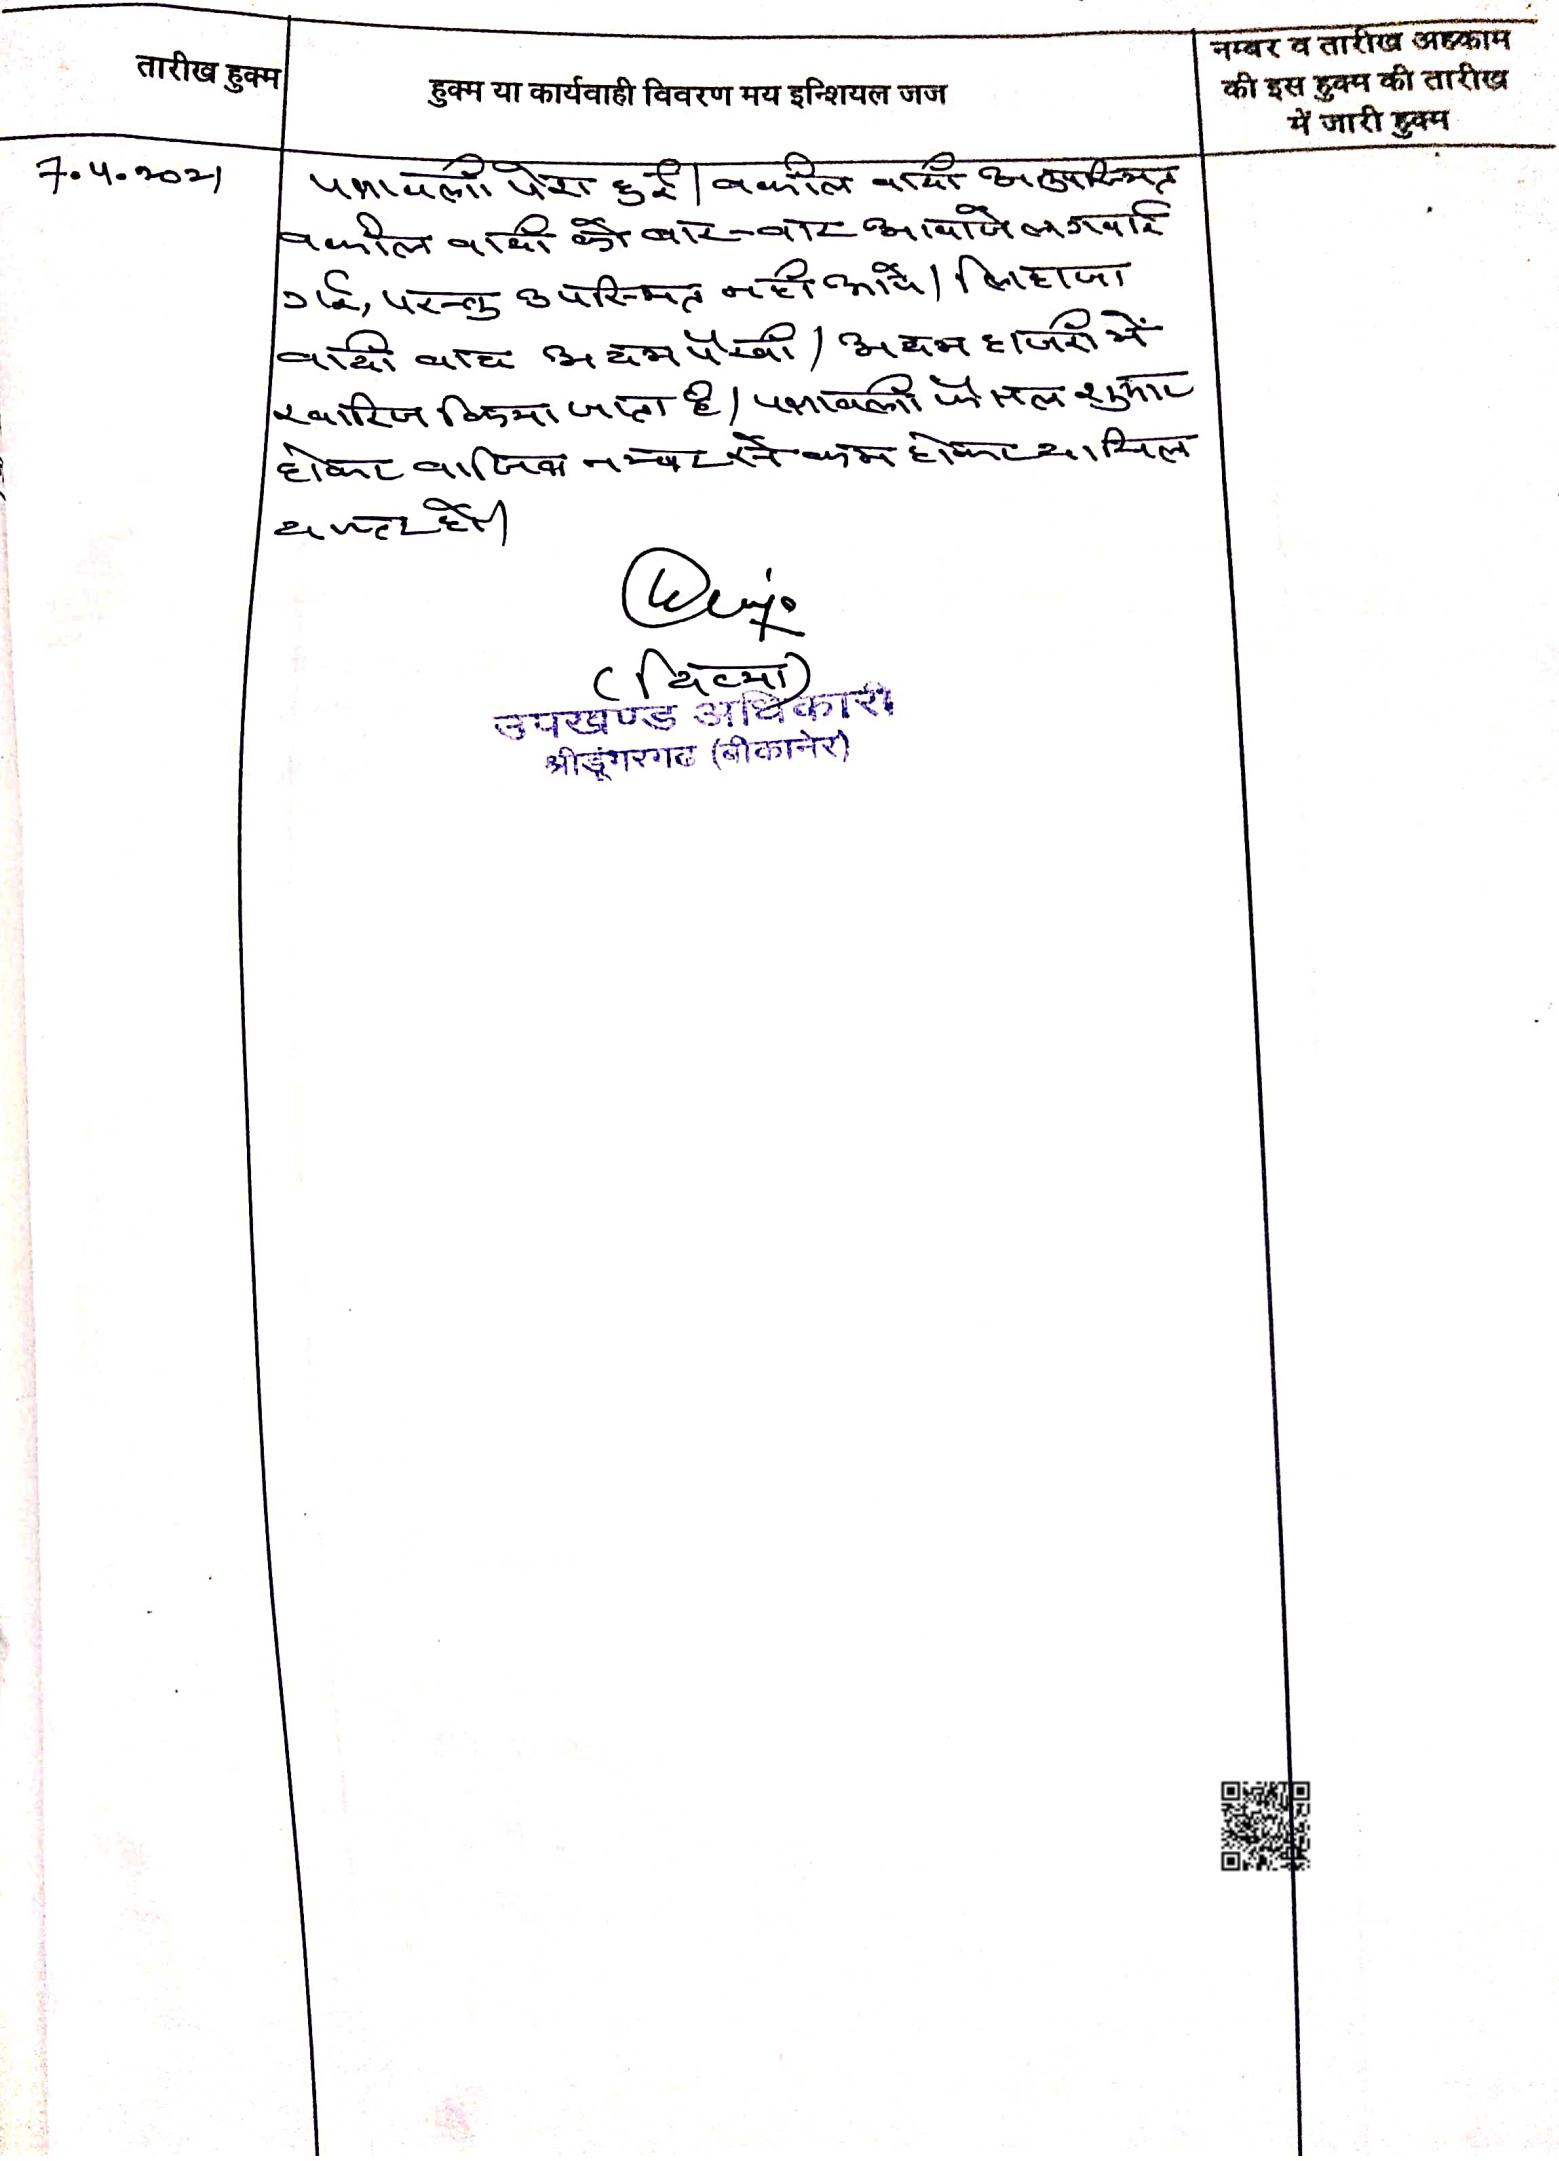 तारीख हुक्म
हुक्म या कार्यवाही विवरण मय इन्शियल जज
नम्बर व तारीख अहकाम
की इस हुक्म की तारीख
में जारी हुक्म
7.4.2021
पत्रावली पेश हुई। वकील वादी अनुपस्थित
वकील वादी को बार-बार आवाजे लगवाई
गई, परन्तु उपस्थित नही आये। लिहाजा
वादी वाद अदम पैरवी / अदम हाजरी में
खारिज किया जाता है। पत्रावली फैसल शुमार
होकर वाजिब नम्बर से कम होकर दाखिल
दफ्तर हो।
(दिव्या)
उपखण्ड अधिकारी
श्रीडूंगरगढ (बीकानेर)